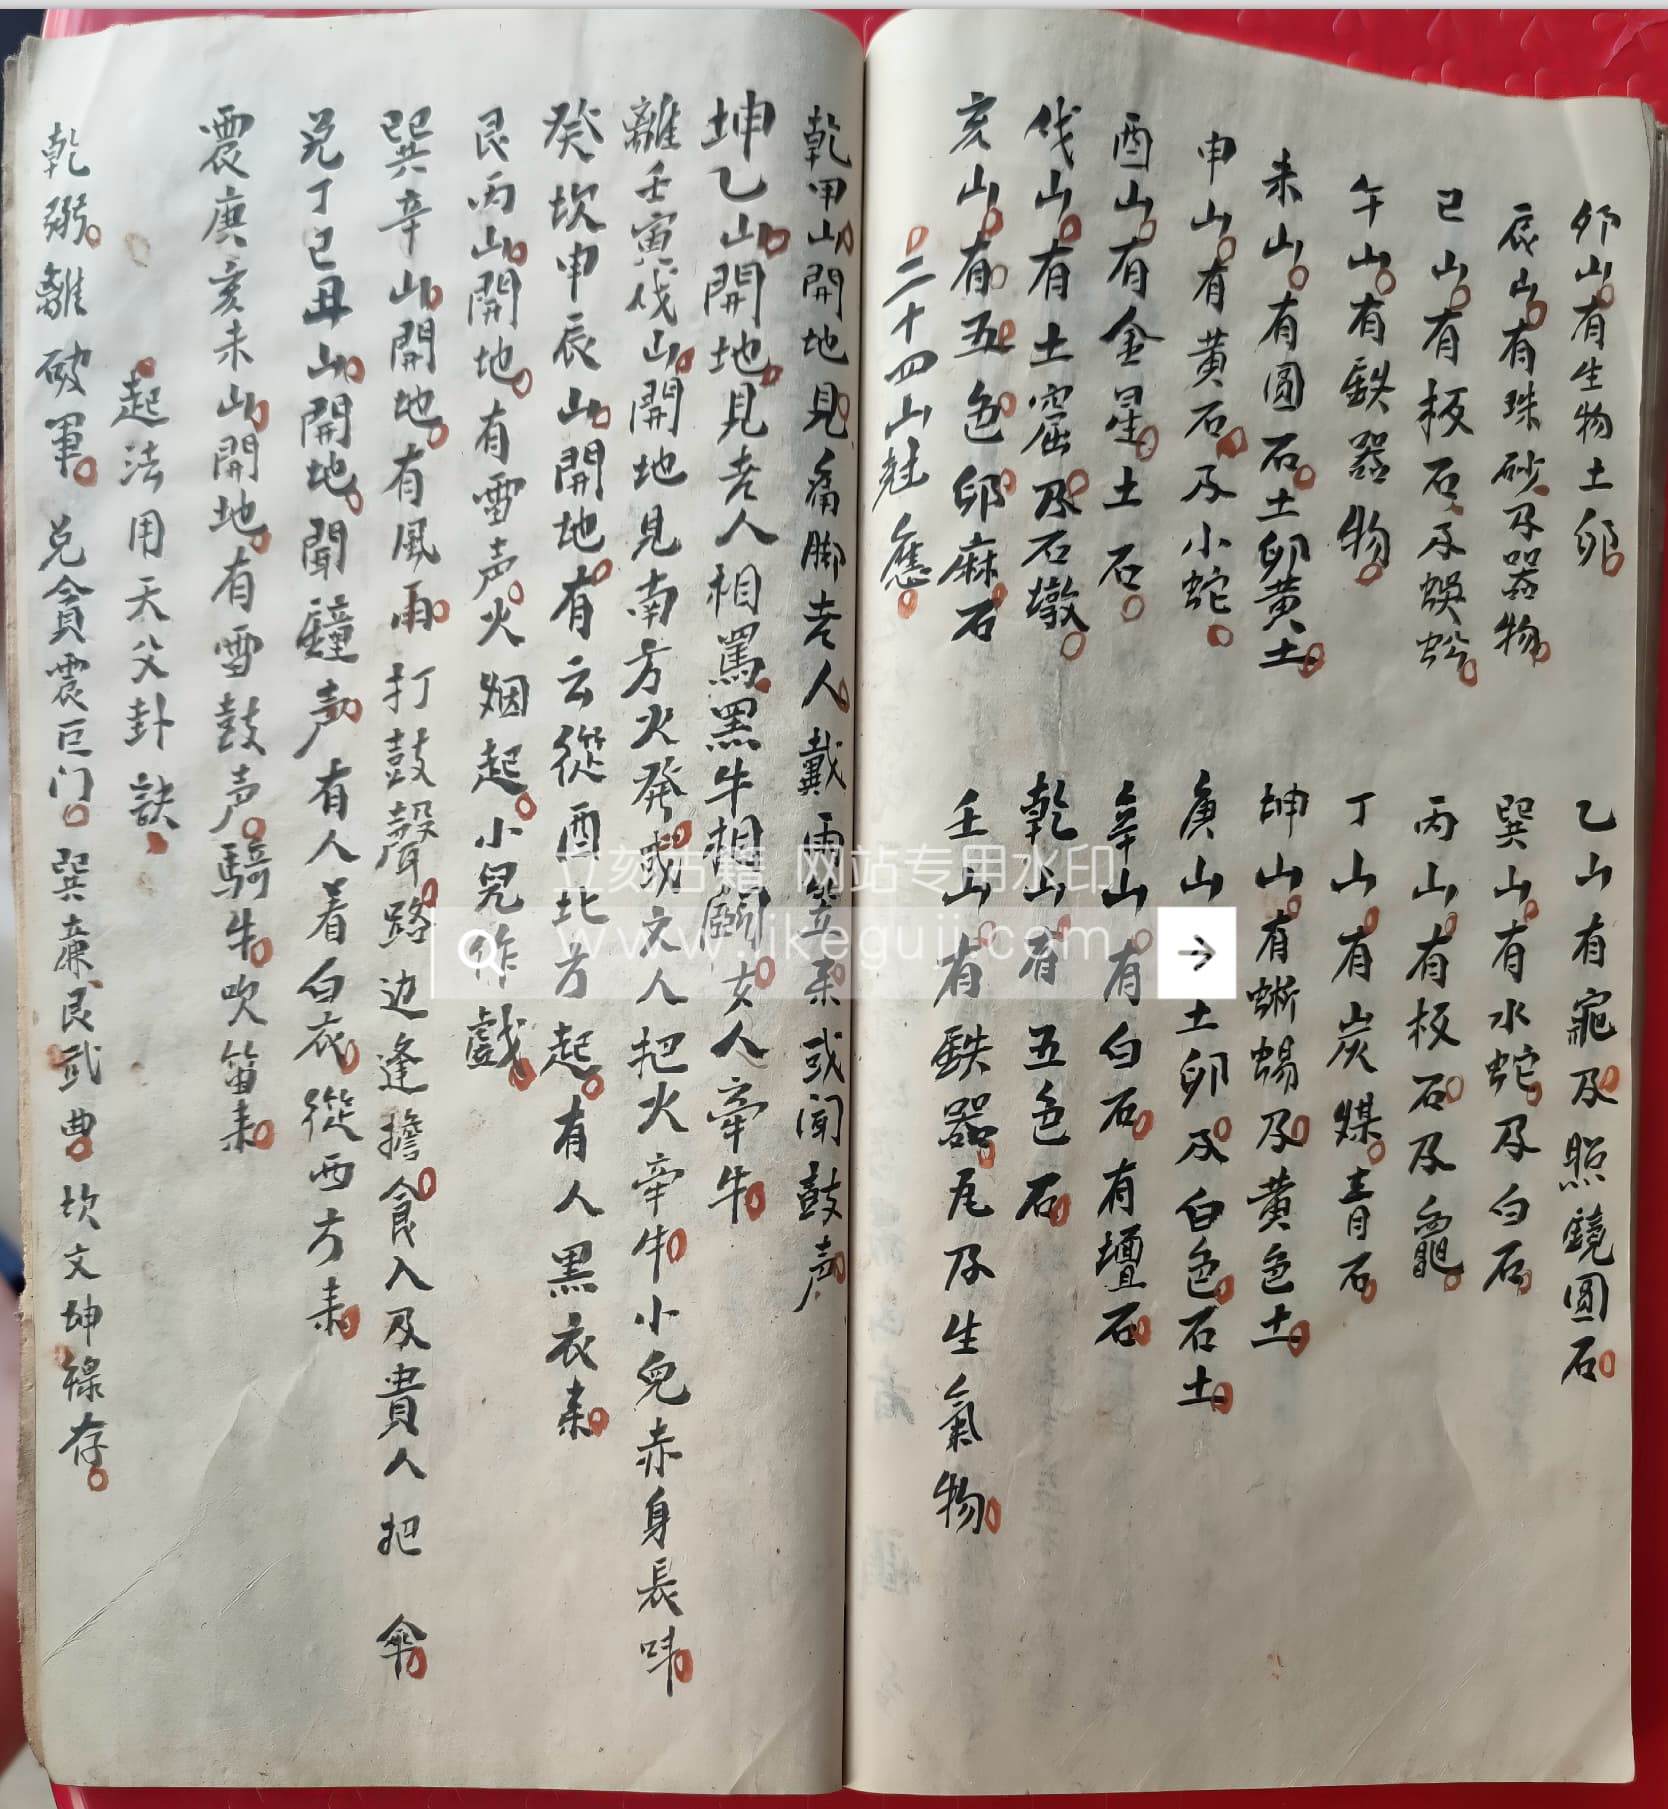 卯山有生物土卵 乙山有龜及照鏡圓石
辰山有珠砂及器物 巽山有水蛇及白石
巳山有板石及蜈蚣 丙山有板石及龜
午山有鉄器物 丁山有炭煤青石
未山有圓石土卵黄土 坤山有蜥蜴及黄色土
申山有黄石及小蛇 庚山土卵及白色石土
酉山有金星土石 辛山有白石有壇石
伐山有土窟及石墩 乾山有五色石
亥山有五色卵麻石 壬山有鉄器瓦及生氣物
二十四山尅應
乾甲山開地見痛脚老人戴雨笠来或闻鼓声
坤乙山開地見老人相罵黑牛相鬪女人牵牛
離壬寅伐山開地見南方火發或文人把火牵牛小兒赤身長
癸坎申辰山開地有云從酉北方起有人黑衣来
艮丙山開地有雷声火烟起小兒作戯
巽辛山開地有風雨打鼓聲路边逢擔食入及貴人把傘
兑丁巳丑山開地聞鐘声有人着白衣從西方来
震庚亥未山開地有雪鼓声騎牛吹笛来
起法用天父卦訣
乾弼離破軍兑貪震巨门巽廉艮武曲坎文坤祿存
立刻古籍 网站专用水印
www.likeguji.com